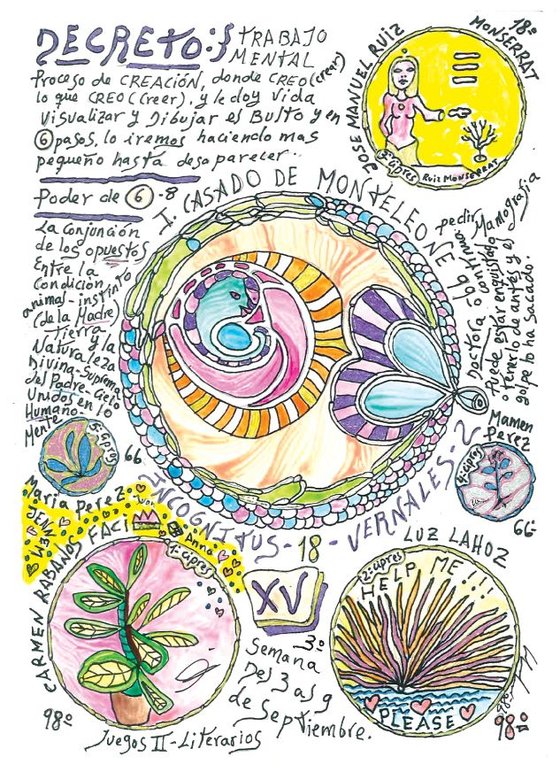 DECRETO:} TRABAJO
MENTAL
Proceso de CREACIÓN, donde CREO (crear)
lo que CREO (Creer), y le doy vida
Visualizar y Dibujar el Busto y en
6 pasos, lo iremos haciendo mas
pequeño hasta desaparecer..
Poder de 6.8
La Conjunción
de los opuestos
Entre la
Condición
animal-instinto
(de la Madre)
Tierra
y la
Naturaleza
Divina-Suprema
del Padre-Cielo
Unidos en lo
Humano-
Mente
18º
JOSE MANUEL RUIZ MONSERRAT
3-cúpres
RUIZ MONSERRAT
I. CASADO DE MONTELEONE 99º
pedir Mamografia
Doctora continua
Puede estar enquistado
o Tenerlo de antes y el
golpe lo ha sacado.
5-cúpres
66
Mamen
Perez
4-cúpres
66-
INCOGNITUS-18-VERNALES-2
Maria Perez
JENNSEM
Anna
CARMEN RABANOS FACI
1-cúpres
98º
XV
3º
Semana
Del 3 al 9
de Septiembre.
Juegos II-Literarios
LUZ LAHOZ
2-cúpres
HELP ME!!!
PLEASE
98º